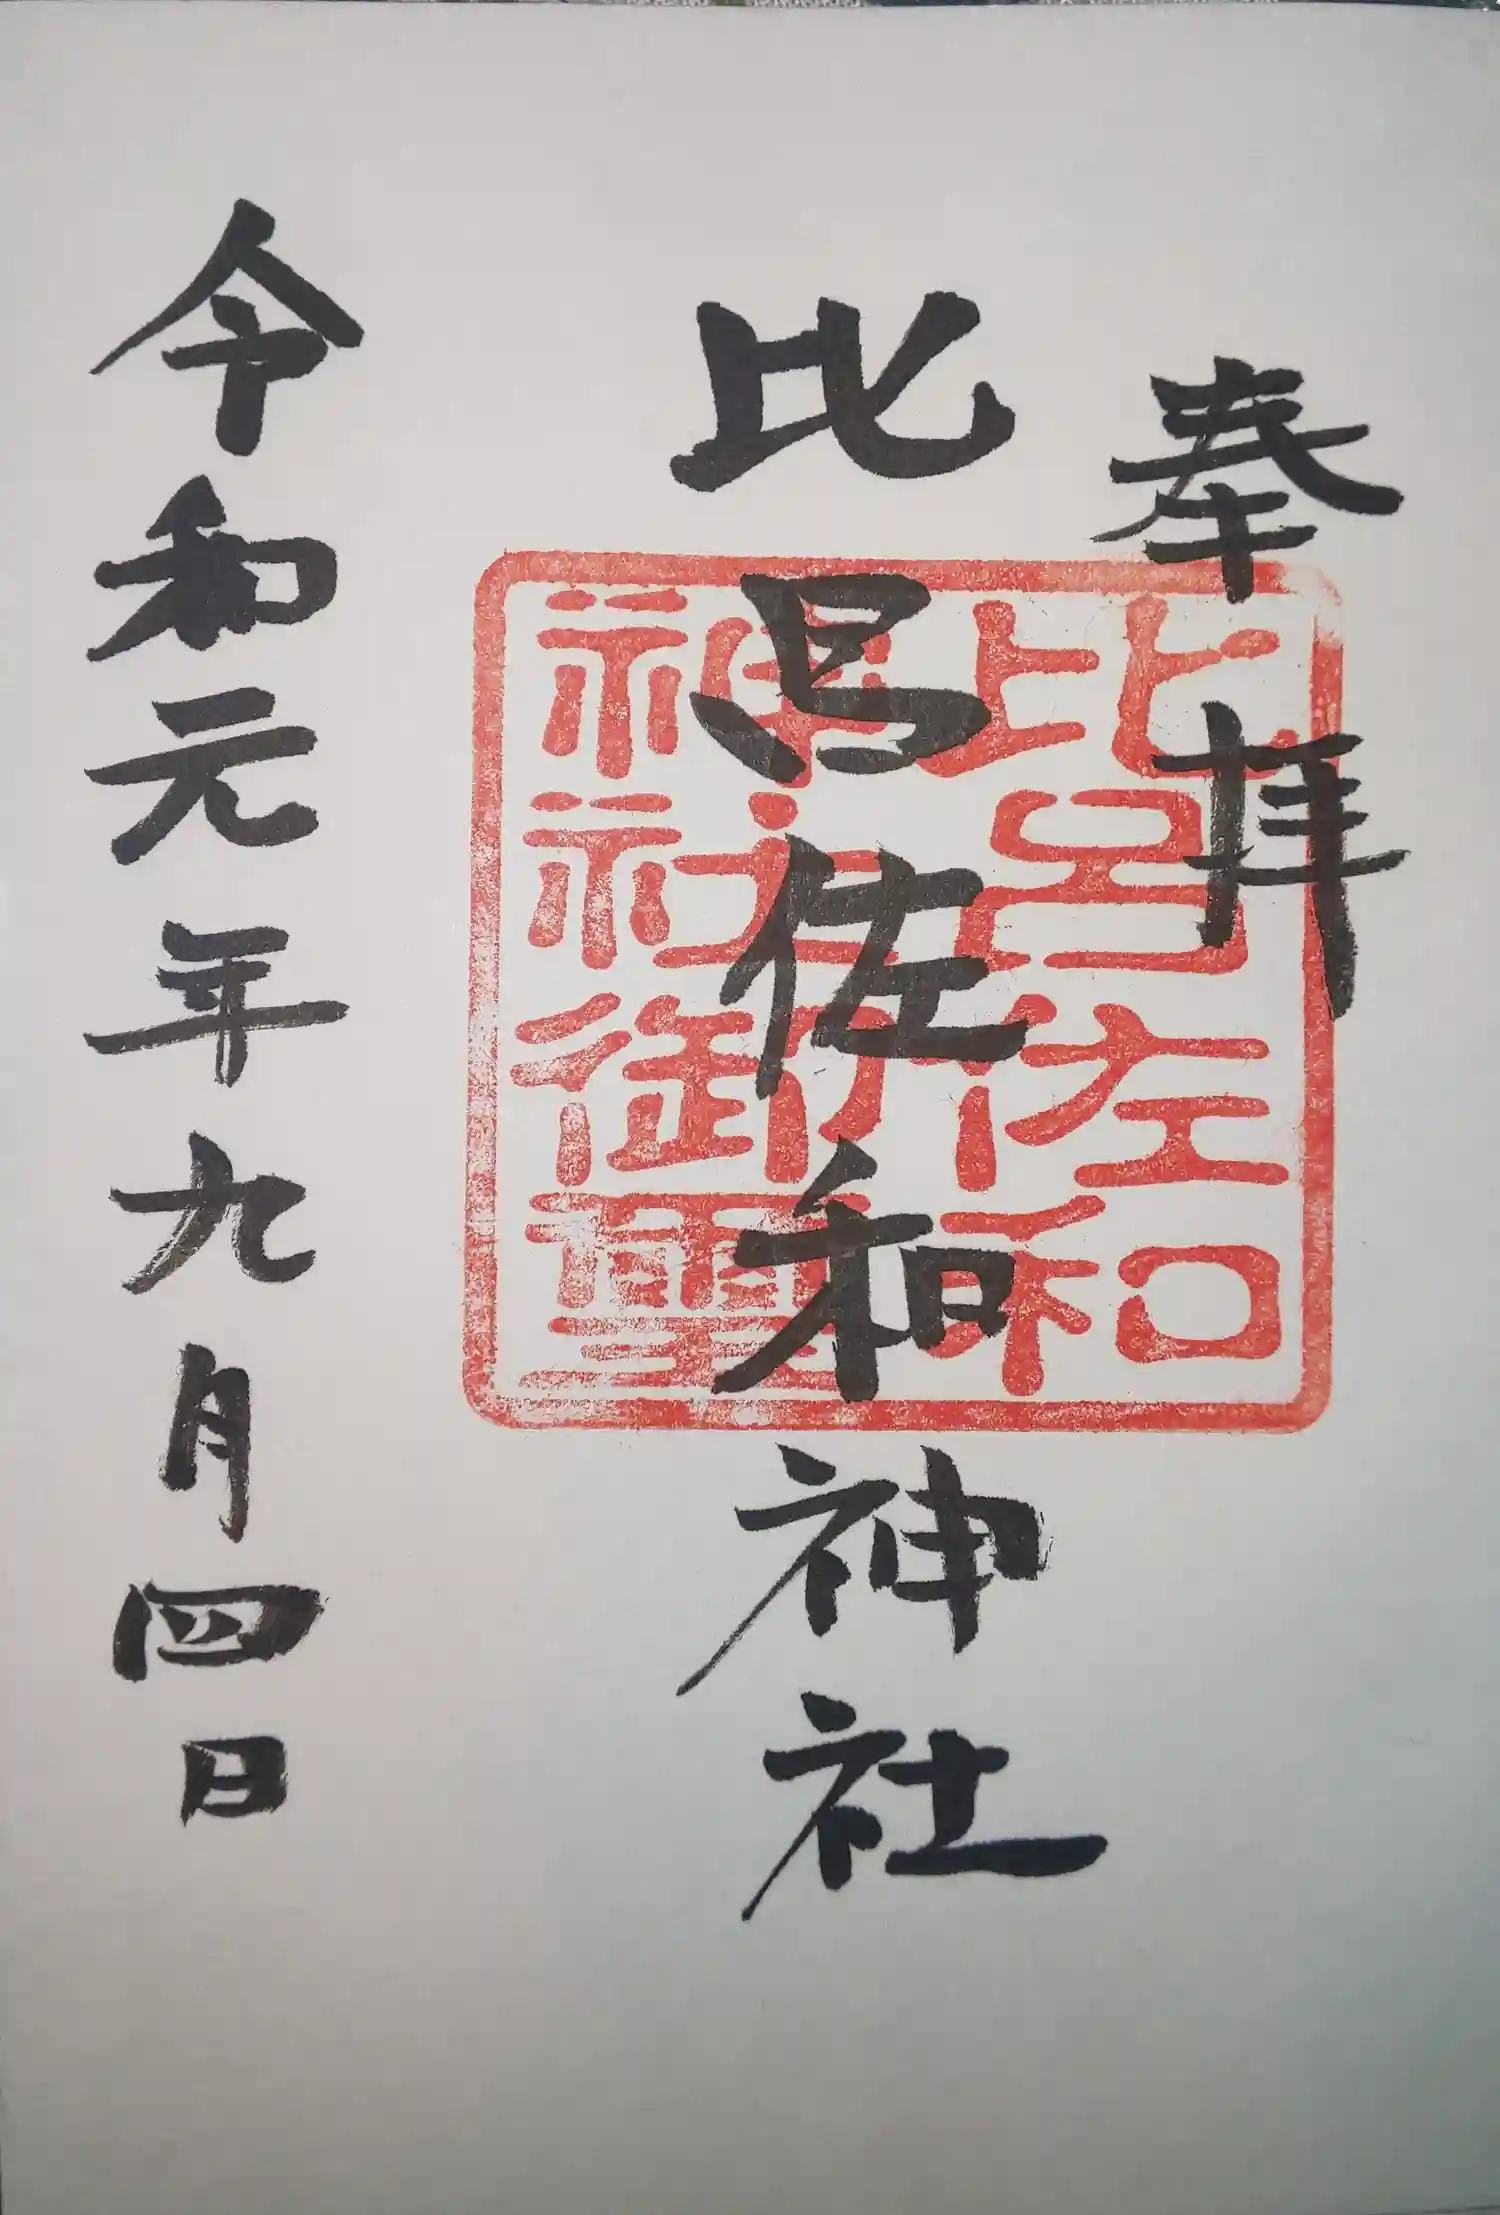 奉拝
比呂佐和神社
比呂佐和
神社御璽
令和元年九月四日